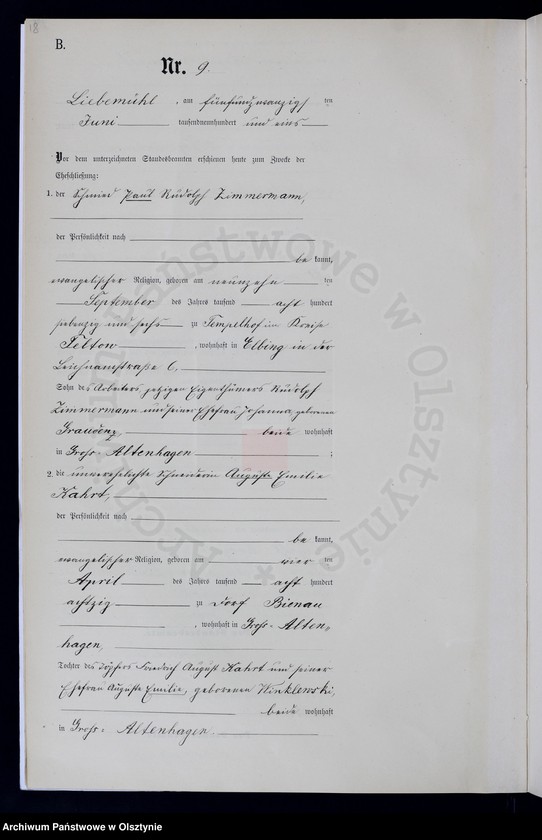 18
B.
Nr. 9.
Liebemühl, am fünfundzwanzigsten
Juni tausendneunhundert und eins
Vor dem unterzeichneten Standesbeamten erschienen heute zum Zwecke der
Eheschließung:
1. der Schmied Paul Rudolf Zimmermann,
der Persönlichkeit nach
be kannt,
evangelischer Religion, geboren am neunzehn ten
September des Jahres tausend acht hundert
siebenzig und sechs zu Tempelhof im Kreise
Teltow, wohnhaft in Elbing in der
Leichnamstraße
Sohn des Arbeiters jetzigen Eigenthümers Rudolf
Zimmermann und seiner Ehefrau Johanna, geborenen
Graudenz beide wohnhaft
in Groß-Altenhagen ;
2. die unverehelichte Schneiderin Auguste Emilie
Kahrt,
der Persönlichkeit nach
be kannt,
evangelischer Religion, geboren am vier ten
April des Jahres tausend acht hundert
achtzig zu Dorf Bienau
, wohnhaft in Groß-Alten-
hagen,
Tochter des Töpfers Friedrich August Kahrt und seiner
Ehefrau Auguste Emilie, geborenen Winklewski,
beide wohnhaft
in Groß-Altenhagen.
Archiwum Państwowe w Olsztynie
Archiwum Państwowe w Olsztynie